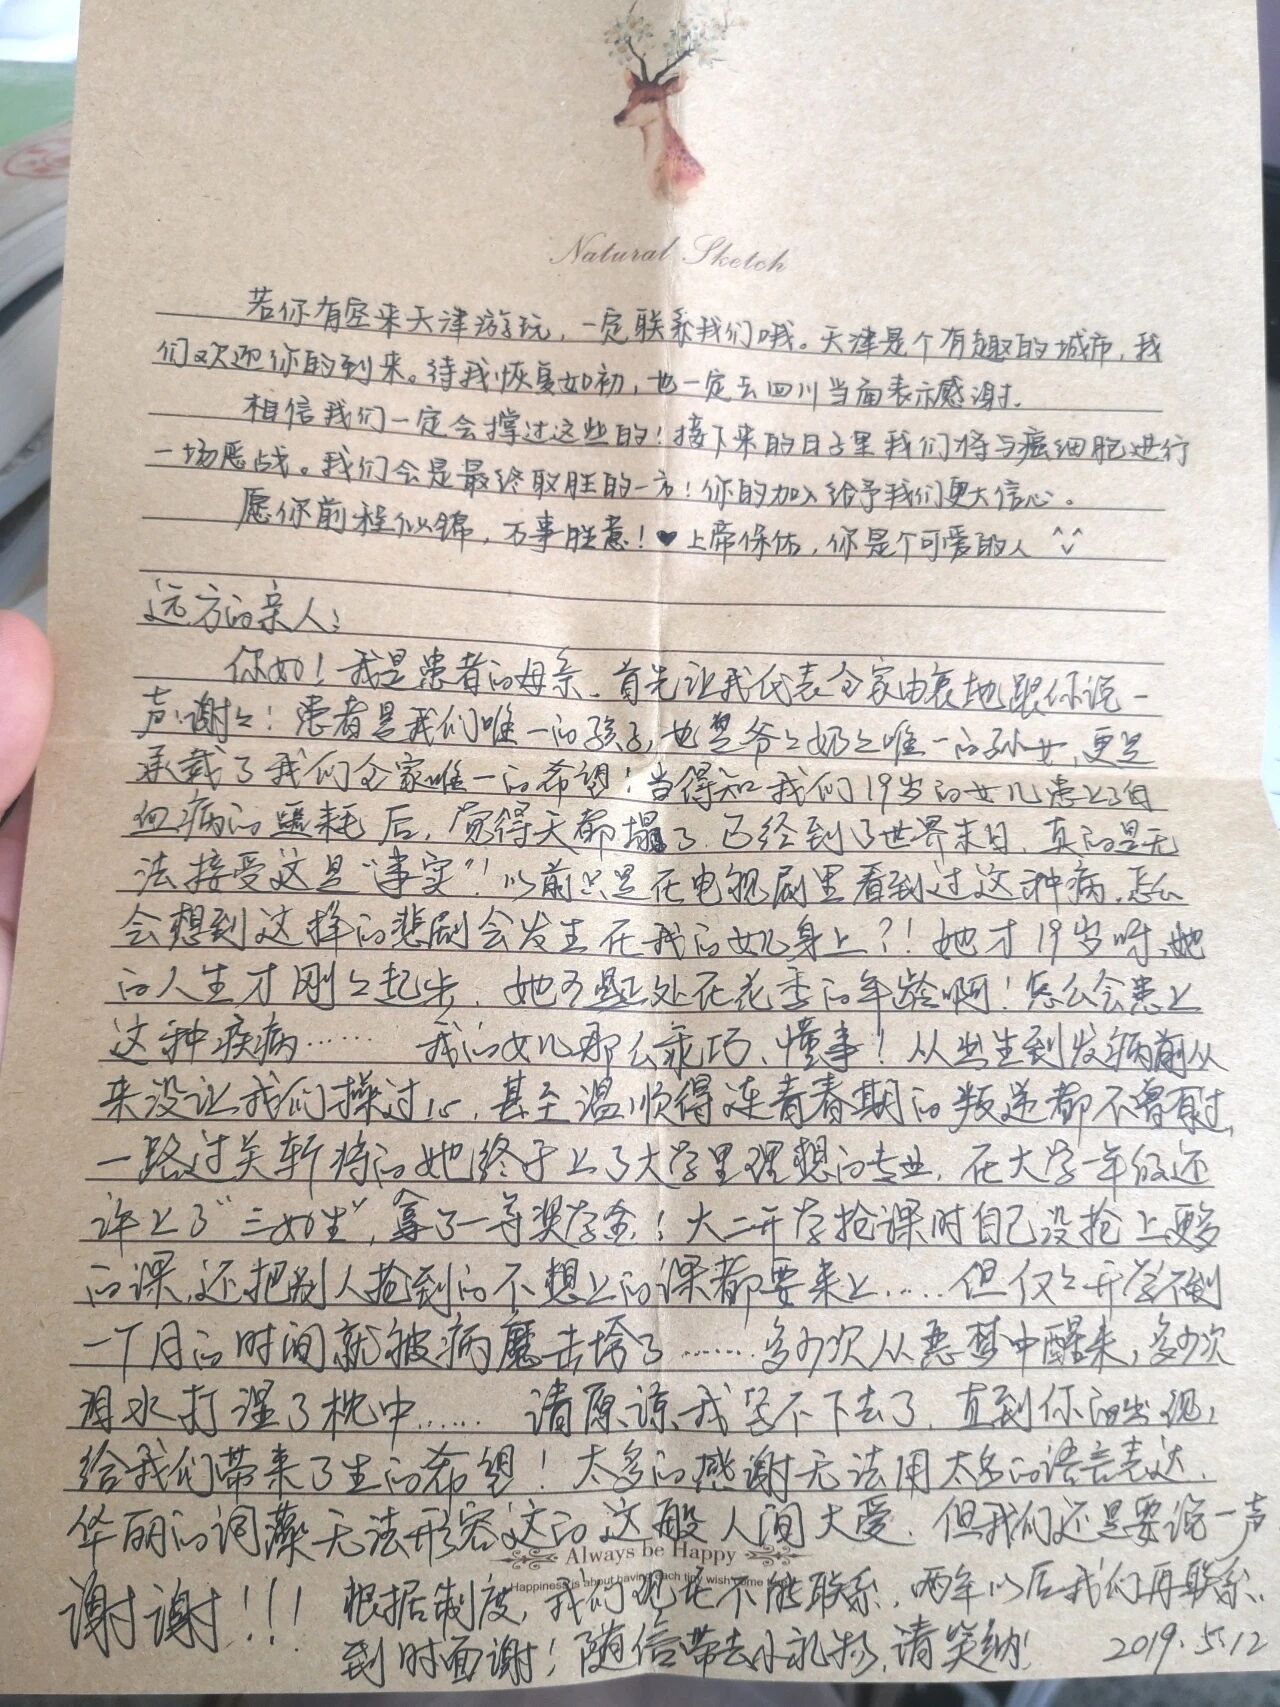 Natural Sketch
若你有空来天津游玩，一定联系我们哦。天津是个有趣的城市，我
们欢迎你的到来。待我恢复如初，也一定去四川当面表示感谢.
相信我们一定会撑过这些的！接下来的日子里我们将与癌细胞进行
一场恶战。我们会是最终取胜的一方！你的加入给予我们更大信心。
愿你前程似锦，万事胜意！♥上帝保佑，你是个可爱的人
远方的亲人：
你好！我是患者的母亲。首先让我代表全家由衷地跟你说一
声谢々！患者是我们唯一的孩子，也是爷々奶々唯一的孙女，更是
承载了我们全家唯一的希望！当得知我们19岁的女儿患上了白
血病的噩耗后，觉得天都塌了，已经到了世界末日，真的是无
法接受这是“事实”！以前只是在电视剧里看到过这种病，怎么
会想到这样的悲剧会发生在我的女儿身上？！她才19岁呀，她
的人生才刚々起步，她正处在花季的年龄啊！怎么会患上
这种疾病…… 我的女儿那么乖巧、懂事！从出生到发病前从
来没让我们操过心，甚至温顺得连青春期的叛逆都不曾有过，
一路过关斩将的她终于上了大学里理想的专业，在大学一年级还
评上了“三好生”，拿了一等奖学金！大二开学抢课时自己没抢上更多
的课，还把别人抢到的不想上的课都要来上……但仅々开学不到
一个月的时间就被病魔击垮了……多少次从恶梦中醒来，多少次
泪水打湿了枕巾…… 请原谅我写不下去了，直到你的出现，
给我们带来了生的希望！太多的感谢无法用太多的语言表达，
华丽的词藻无法形容这的这般人间大爱，但我们还是要说一声
Always be Happy
Happiness is about having each tiny wish come
谢谢！！！ 根据制度，我们现在不能联系，两年以后我们再联系，
到时面谢！随信带去小礼物，请笑纳！ 2019.5.12